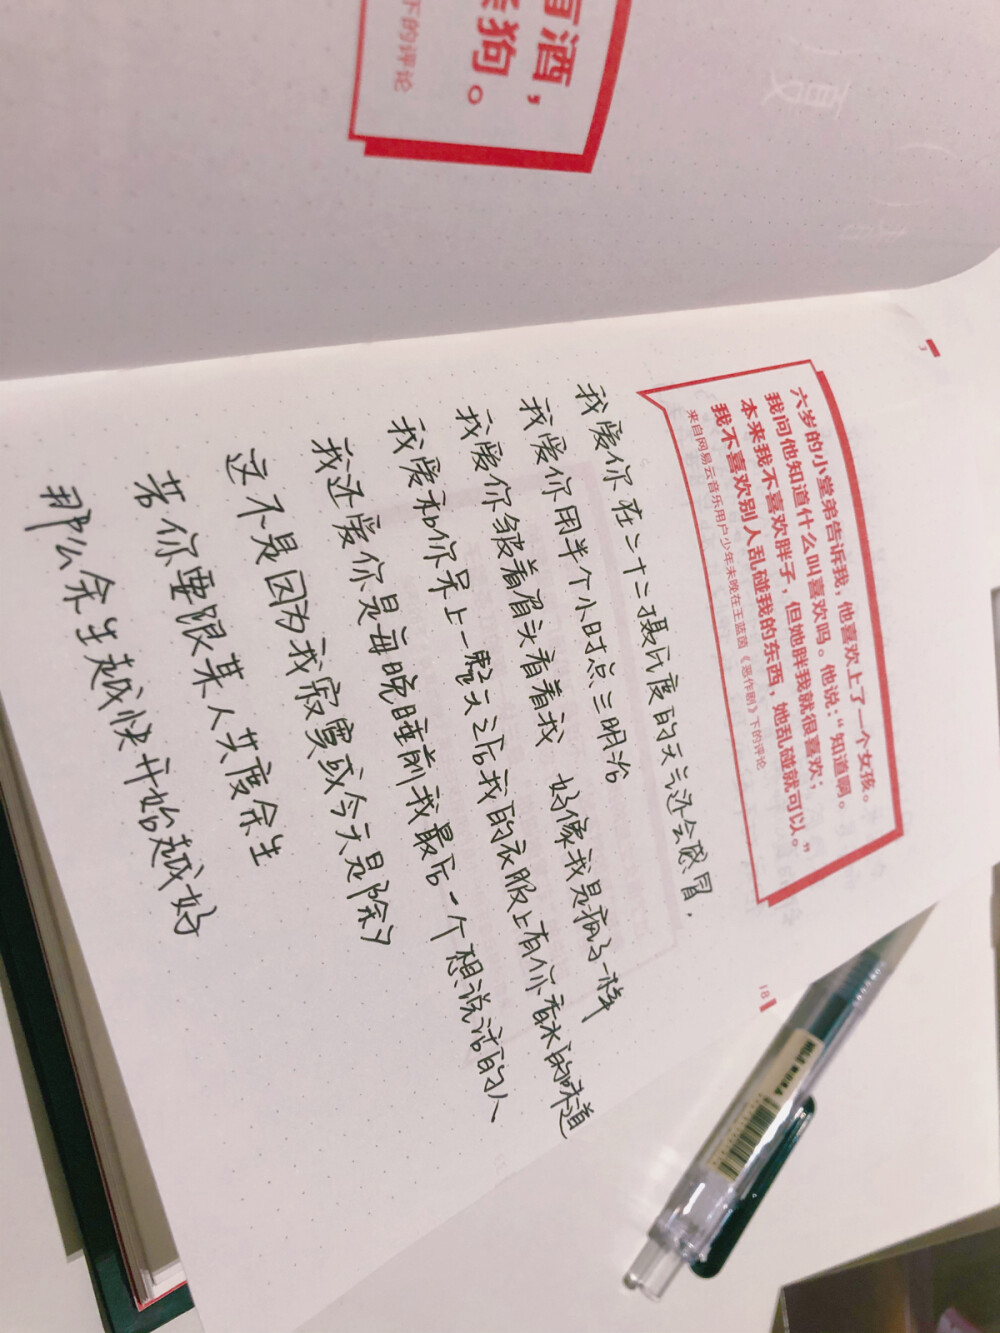 有酒，
狗。
下的评论
夏
六岁的小堂弟告诉我，他喜欢上了一个女孩。
我问他知道什么叫喜欢吗。他说：“知道啊。
本来我不喜欢胖子，但她胖我就很喜欢；
我不喜欢别人乱碰我的东西，她乱碰就可以。”
来自网易云音乐用户少年未晚在王蓝茵《恶作剧》下的评论
我爱你在二十二摄氏度的天气还会感冒，
我爱你用半个小时点三明治
我爱你皱着眉头看着我 好像我是疯子一样
我爱和你呆上一整天之后我的衣服上有你香水的味道
我还爱你是每晚睡前我最后一个想说话的人
这不是因为我寂寞或今天是除夕
若你要跟某人共度余生
那么余生越快开始越好
18
MUJI 無印良品